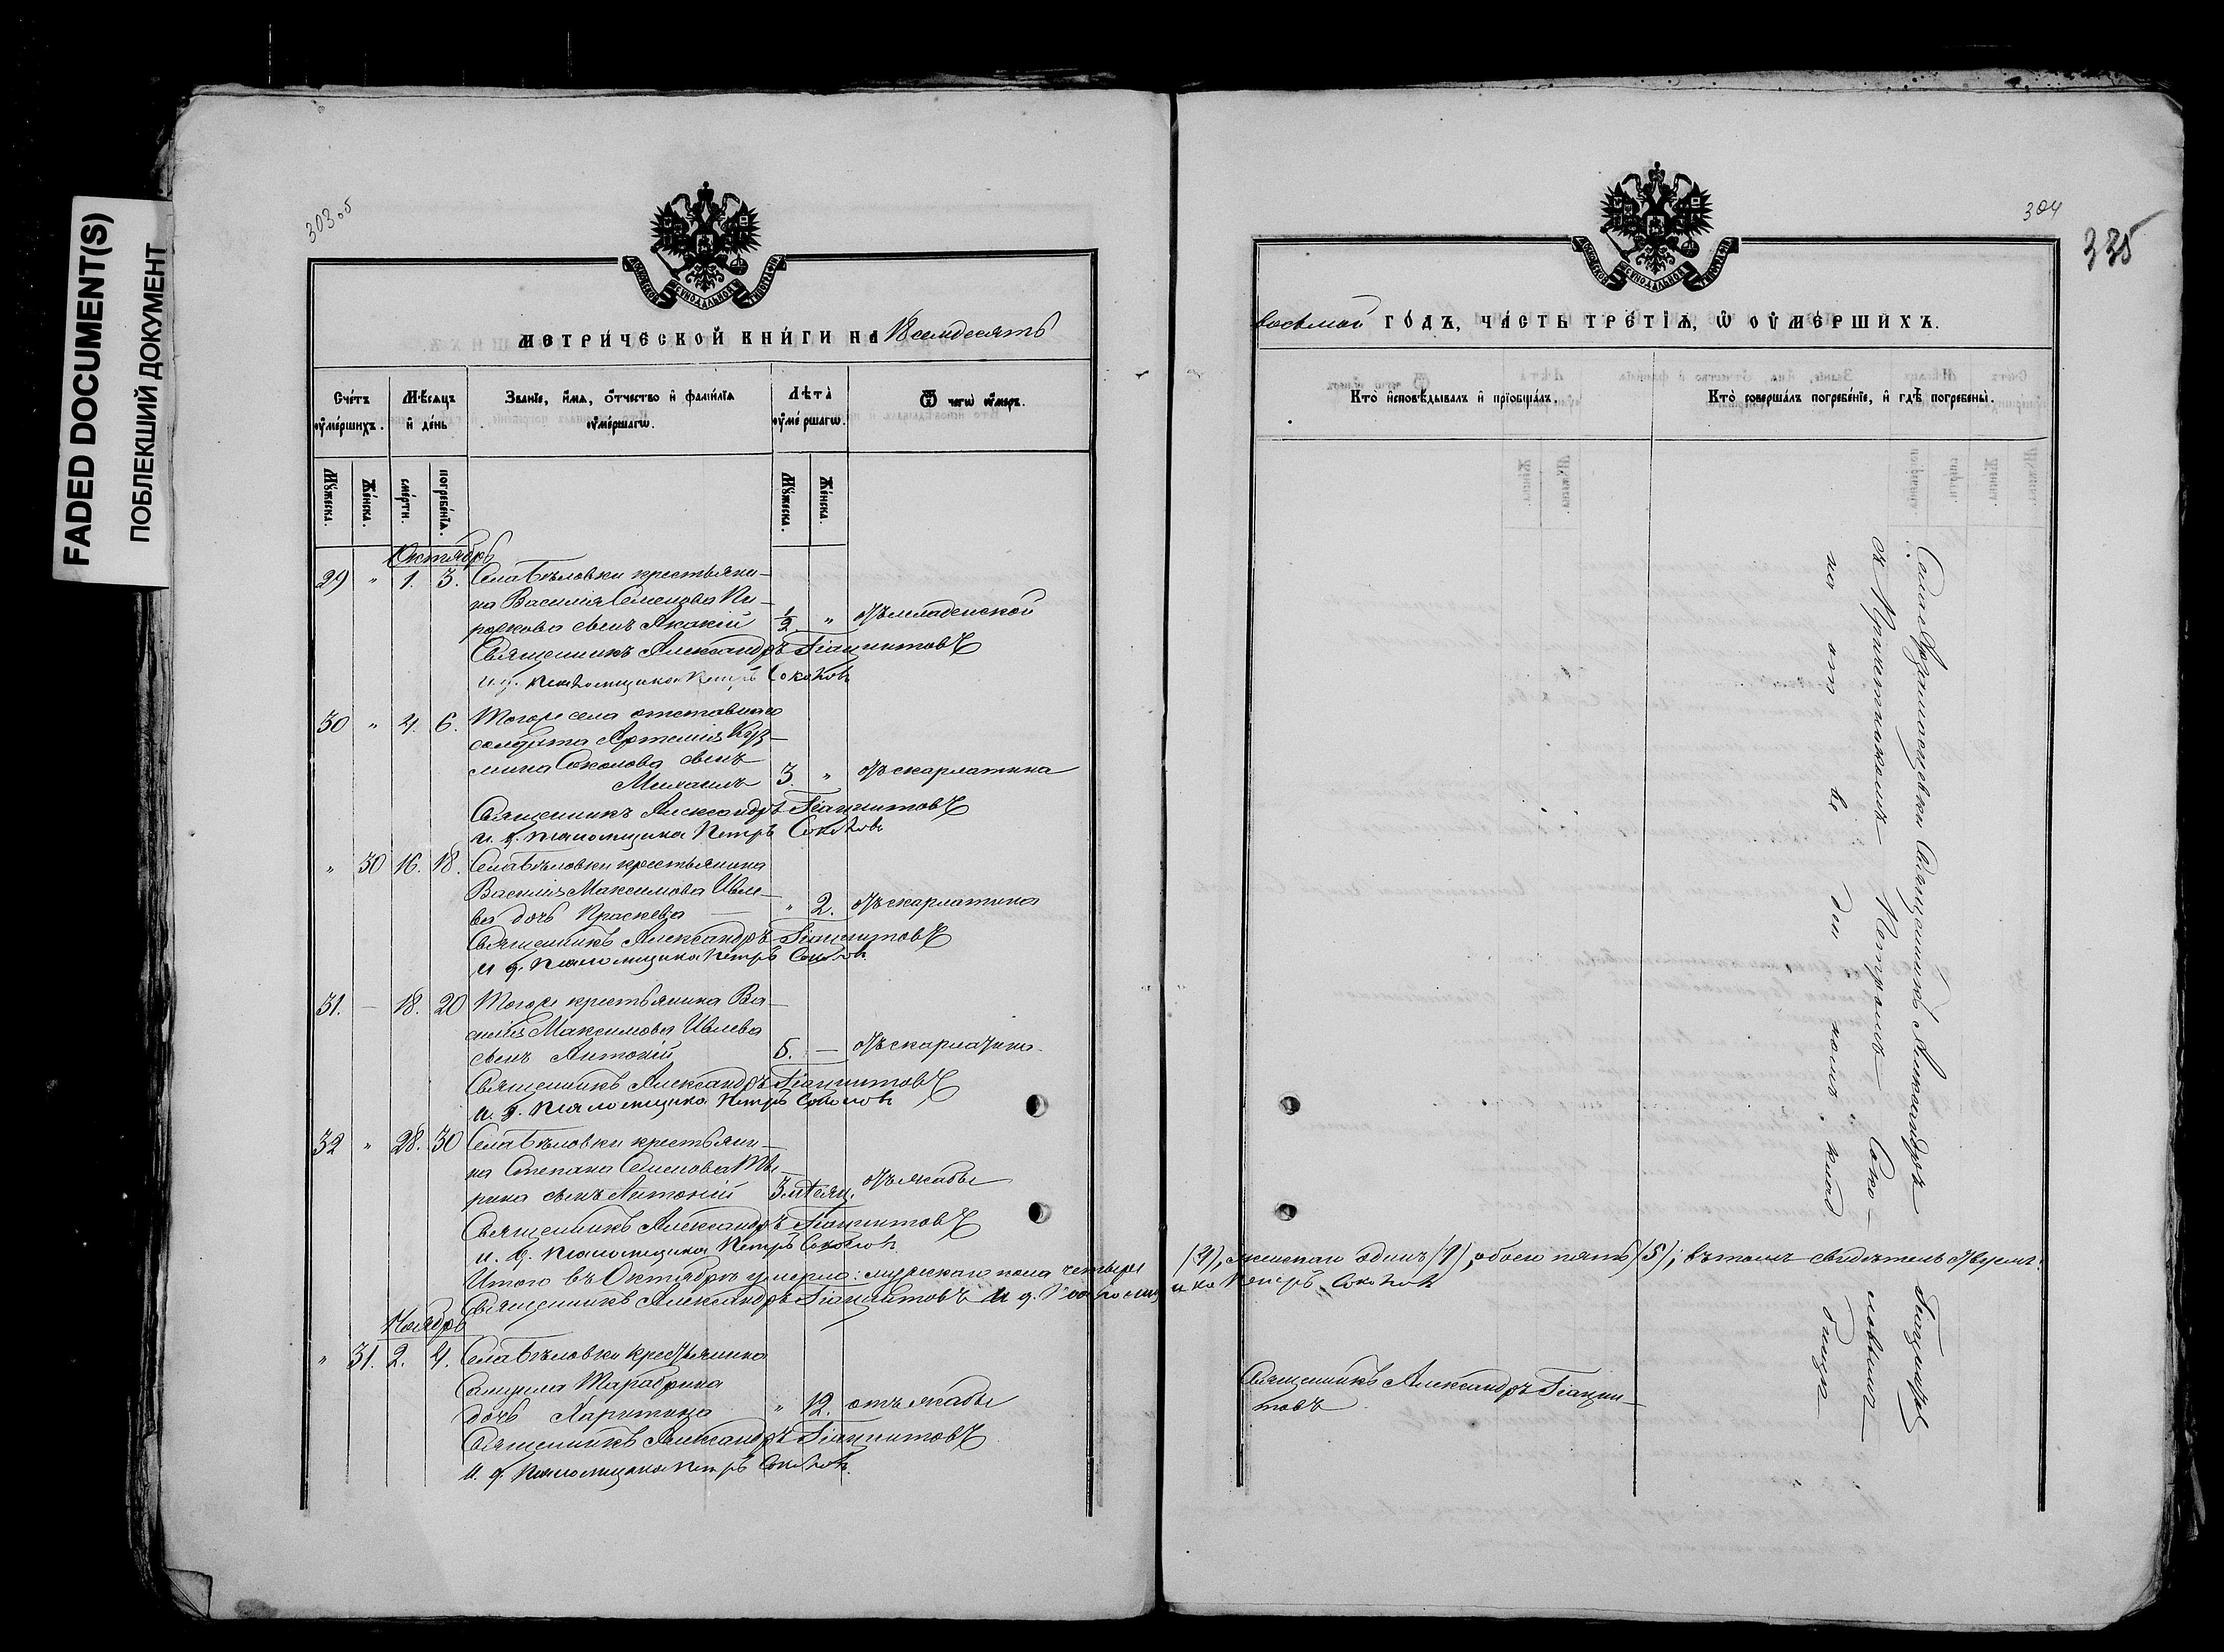 FADED DOCUMENT(S)
ПОБЛЕКШИЙ ДОКУМЕНТ
303 об
МЕТРИ́ЧЕСКОЙ КНИ́ГИ НА 18 семдесятъ
Сче́тъ ᲂу҆ме́ршихъ.
Мѣ́сяцъ и҆ де́нь
Зва́нїе, и҆́мѧ, ѻ҆́тчество и҆ фамы́лїѧ ᲂу҆ме́ршагѡ.
Лѣ́та̀ ᲂу҆ме́ршагѡ.
Ѿ чегѡ̀ ᲂу҆́меръ.
Мꙋ́жеска.
Же́нска.
сме́рти.
погребе́нїѧ.
Мꙋ́жеска.
Же́нска.
Октябрь
29 " 1. 3. Села Бѣловки крестьяни-
на Василія Семенова
сынъ Акакій 1/2 " Отъ младенской
Священникъ Александръ Гіацинтовъ
и. д. псаломщика Петръ Соколовъ
30 " 4. 6. Тогоже села отставнаго
солдата Артемія Куз-
мина Соколова сынъ
Михаилъ 3. " Отъ скарлатина
Священникъ Александръ Гіацинтовъ
и. д. псаломщика Петръ Соколовъ
" 30 16. 18. Села Бѣловки крестьянина
Василія Максимова Ивле-
ва дочь Праскева — " 2. Отъ скарлатина
Священникъ Александръ Гіацинтовъ
и д. псаломщика Петръ Соколовъ
31. — 18. 20 Тогоже крестьянина Ва-
силія Максимова Ивлева
сынъ Антоній 5. — Отъ скарлатина
Священникъ Александръ Гіацинтовъ
и. д. псаломщика Петръ Соколовъ
32 " 28. 30 Села Бѣловки крестьяни-
на Степана Семенова
рина сынъ Антоній 3 мѣсяц. Отъ жабы
Священникъ Александръ Гіацинтовъ
и. д. псаломщика Петръ Соколовъ
Итого въ Октябрѣ умерло: мужескаго пола четыре (4), женскаго одинъ (1), обоего пять (5); въ томъ свидѣтельствуемъ:
Священникъ Александръ Гіацинтовъ и д. Псаломщика Петръ Соколовъ
Ноябрь
" 31. 2. 4. Села Бѣловки крестьянина
Самуила Тарабрина
дочь Харитина " 12. отъ жабы
Священникъ Александръ Гіацинтовъ
и. д. псаломщика Петръ Соколовъ.
304
335
восьмой ГО́ДЪ, ЧА́СТЬ ТРЕ́ТЇѦ, Ѡ҆ ᲂУ҆МЕ́РШИХЪ.
Кто̀ и҆сповѣ́дывалъ и҆ прїѡбща́лъ.
Кто̀ соверша́лъ погребе́нїе, и҆ гдѣ̀ погребены̀.
Священникъ Александръ Гіацин-
товъ
Священникъ Александръ Гіацинтовъ
съ Причетникомъ Петромъ Соко-ловымъ
на